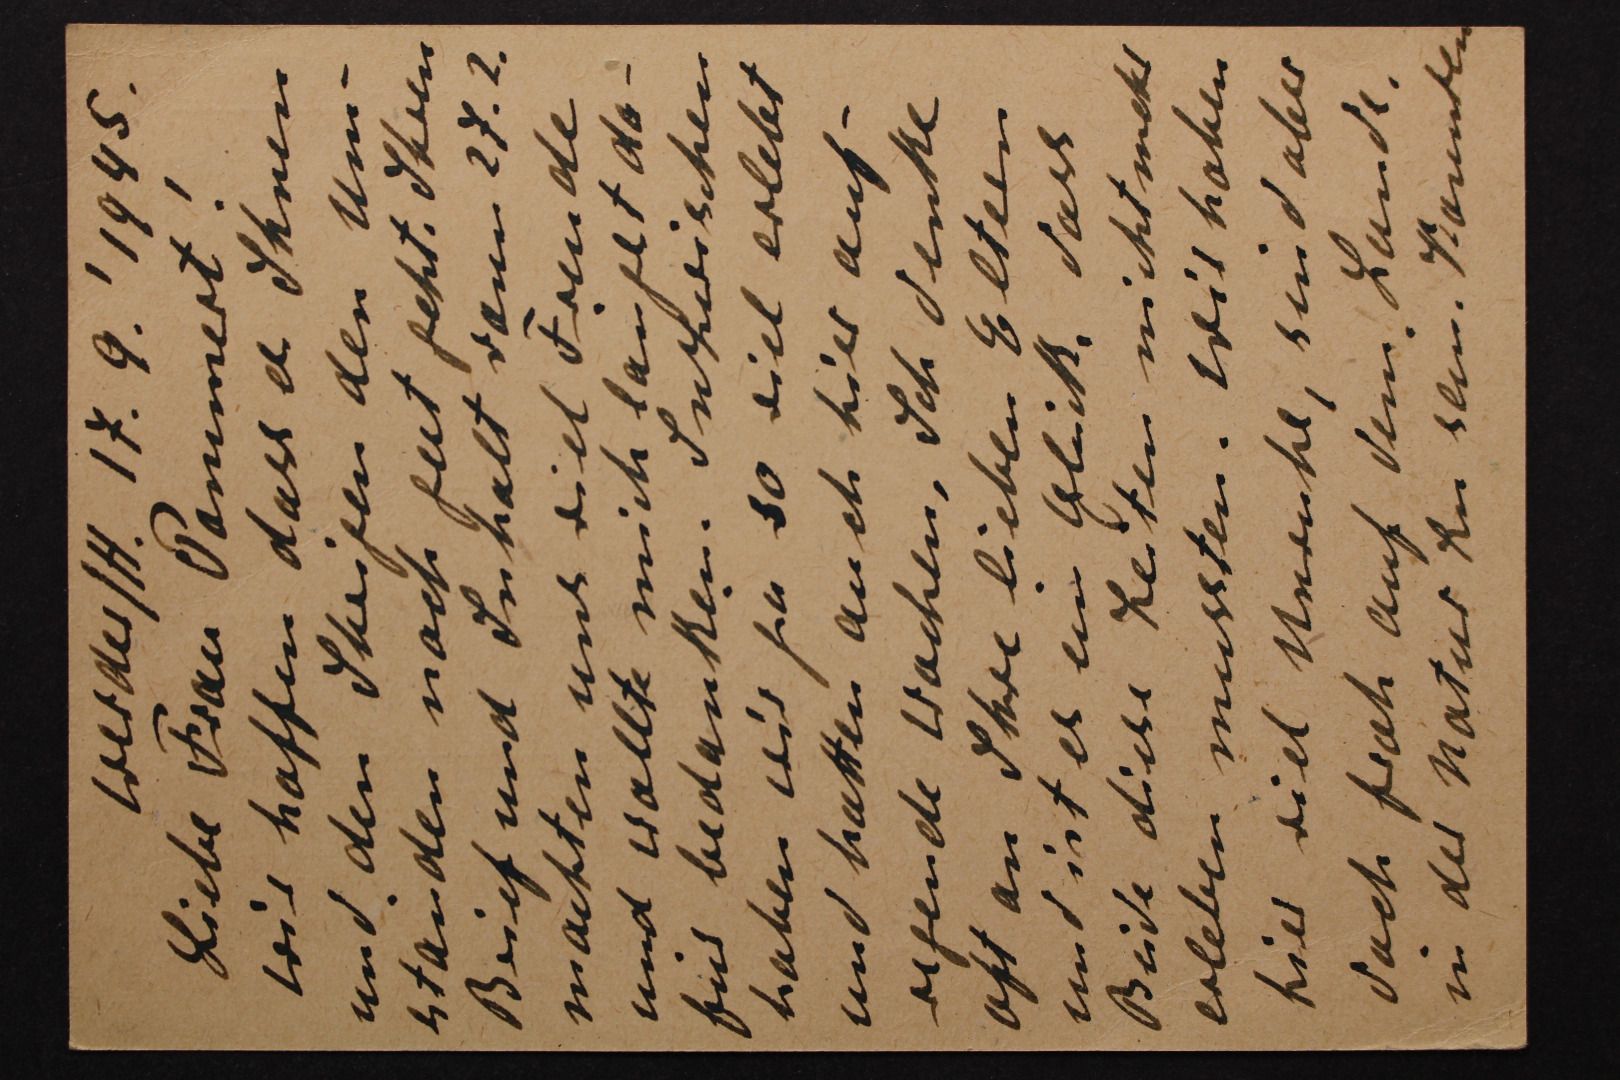 Werder/H. 17. 9. 1945.
Liebe Frau Pommert!
Wir hoffen dass es Ihnen
und den Ihrigen den Um-
ständen nach gut geht. Ihren
Brief und Inhalt vom 27. 2.
machten uns viel Freude
und wollte mich längst da-
für bedanken. Inzwischen
haben wir ja so viel erlebt
und hatten auch hier auf-
regende Wochen, Ich denke
oft an Ihre lieben Eltern
und ist es ein Glück, dass
Beide diese Zeiten nicht mehr
erleben mussten. Wir haben
hier viel Unruhe, sind aber
doch froh auf dem Lande,
in der Natur zu sein. Konnten